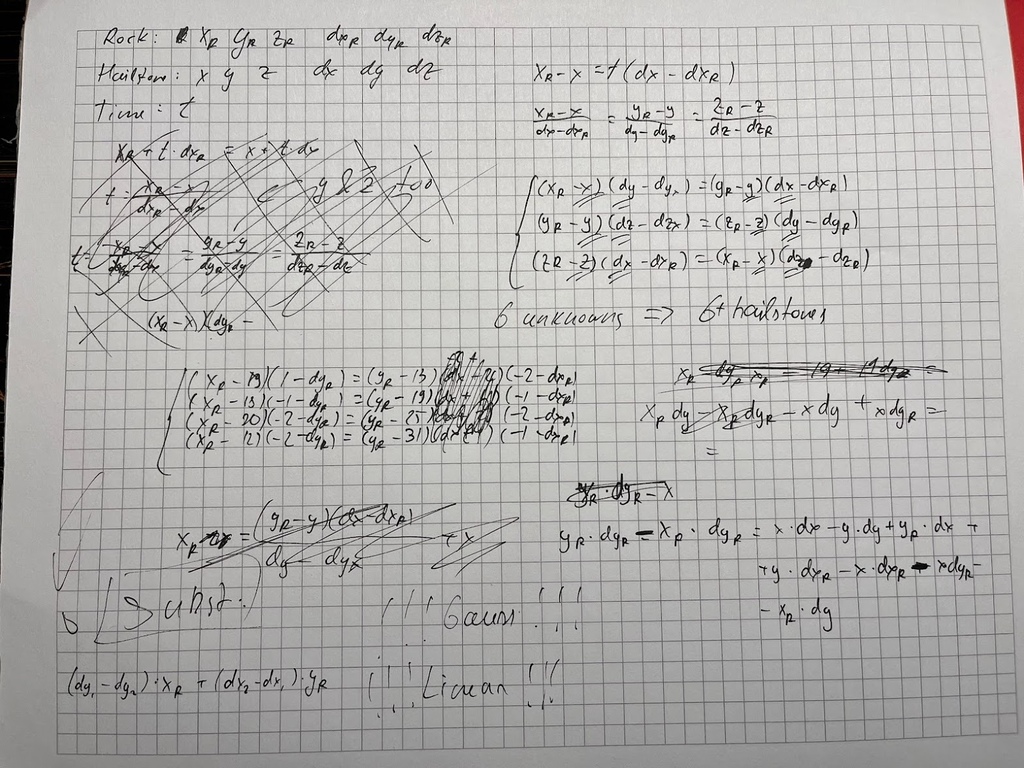 Rock: x_R y_R z_R dx_R dy_R dz_R
Hailstone: x y z dx dy dz
Time: t
x_R + t·dx_R = x + t·dx
t = (x_R - x)/(dx_R - dx) y & z too
(x_R - x)/(dx_R - dx) = (y_R - y)/(dy_R - dy) = (z_R - z)/(dz_R - dz)
(x_R - x)(dy_R -
x_R - x = t(dx - dx_R)
(x_R - x)/(dx - dx_R) = (y_R - y)/(dy - dy_R) = (z_R - z)/(dz - dz_R)
(x_R - x)(dy - dy_R) = (y_R - y)(dx - dx_R)
(y_R - y)(dz - dz_R) = (z_R - z)(dy - dy_R)
(z_R - z)(dx - dx_R) = (x_R - x)(dz - dz_R)
6 unknowns => 6+ hailstones
(x_R - 19)(1 - dy_R) = (y_R - 13) (-2 - dx_R)
(x_R - 18)(-1 - dy_R) = (y_R - 19) (-1 - dx_R)
(x_R - 20)(-2 - dy_R) = (y_R - 25) (-2 - dx_R)
(x_R - 12)(-2 - dy_R) = (y_R - 31) (-1 - dx_R)
x_R dy - x_R dy_R - x dy + x dy_R =
=
y_R · dy_R - x
x_R = (y_R - y)(dx - dx_R)/(dy - dy_R) + x
y_R · dy_R - x_R · dy_R = x · dx - y · dy + y_R · dx +
+ y · dx_R - x · dx_R - x dy_R -
- x_R · dy
Subst. !!! Gauss !!!
(dy_1 - dy_2) · x_R + (dx_2 - dx_1) · y_R !!! Linear !!!